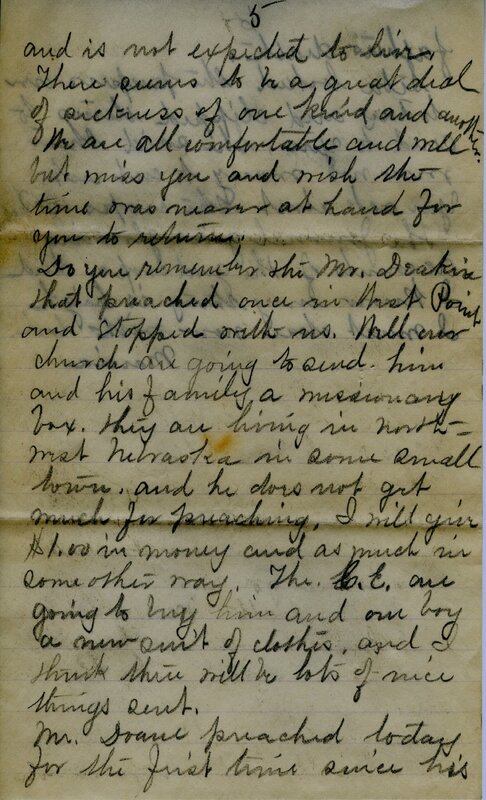 5
and is not expected to live
There seems to be a great deal
of sickness of one kind and another.
We are all comfortable and well
but miss you and wish the
time was nearer at hand for
you to return.
Do you remember the Mr. Deakin
that preached once in West Point
and stopped with us. Well our
church are going to send him
and his family a missionary
box. They are living in north-
west Nebraska in some small
town. and he does not get
much for preaching, I will give
$1.00 in money and as much in
some other way. The C.E. are
going to buy him and one boy
a new suit of clothes, and I
think there will be lots of nice
things sent.
Mr. Doane preached today
for the first time since his